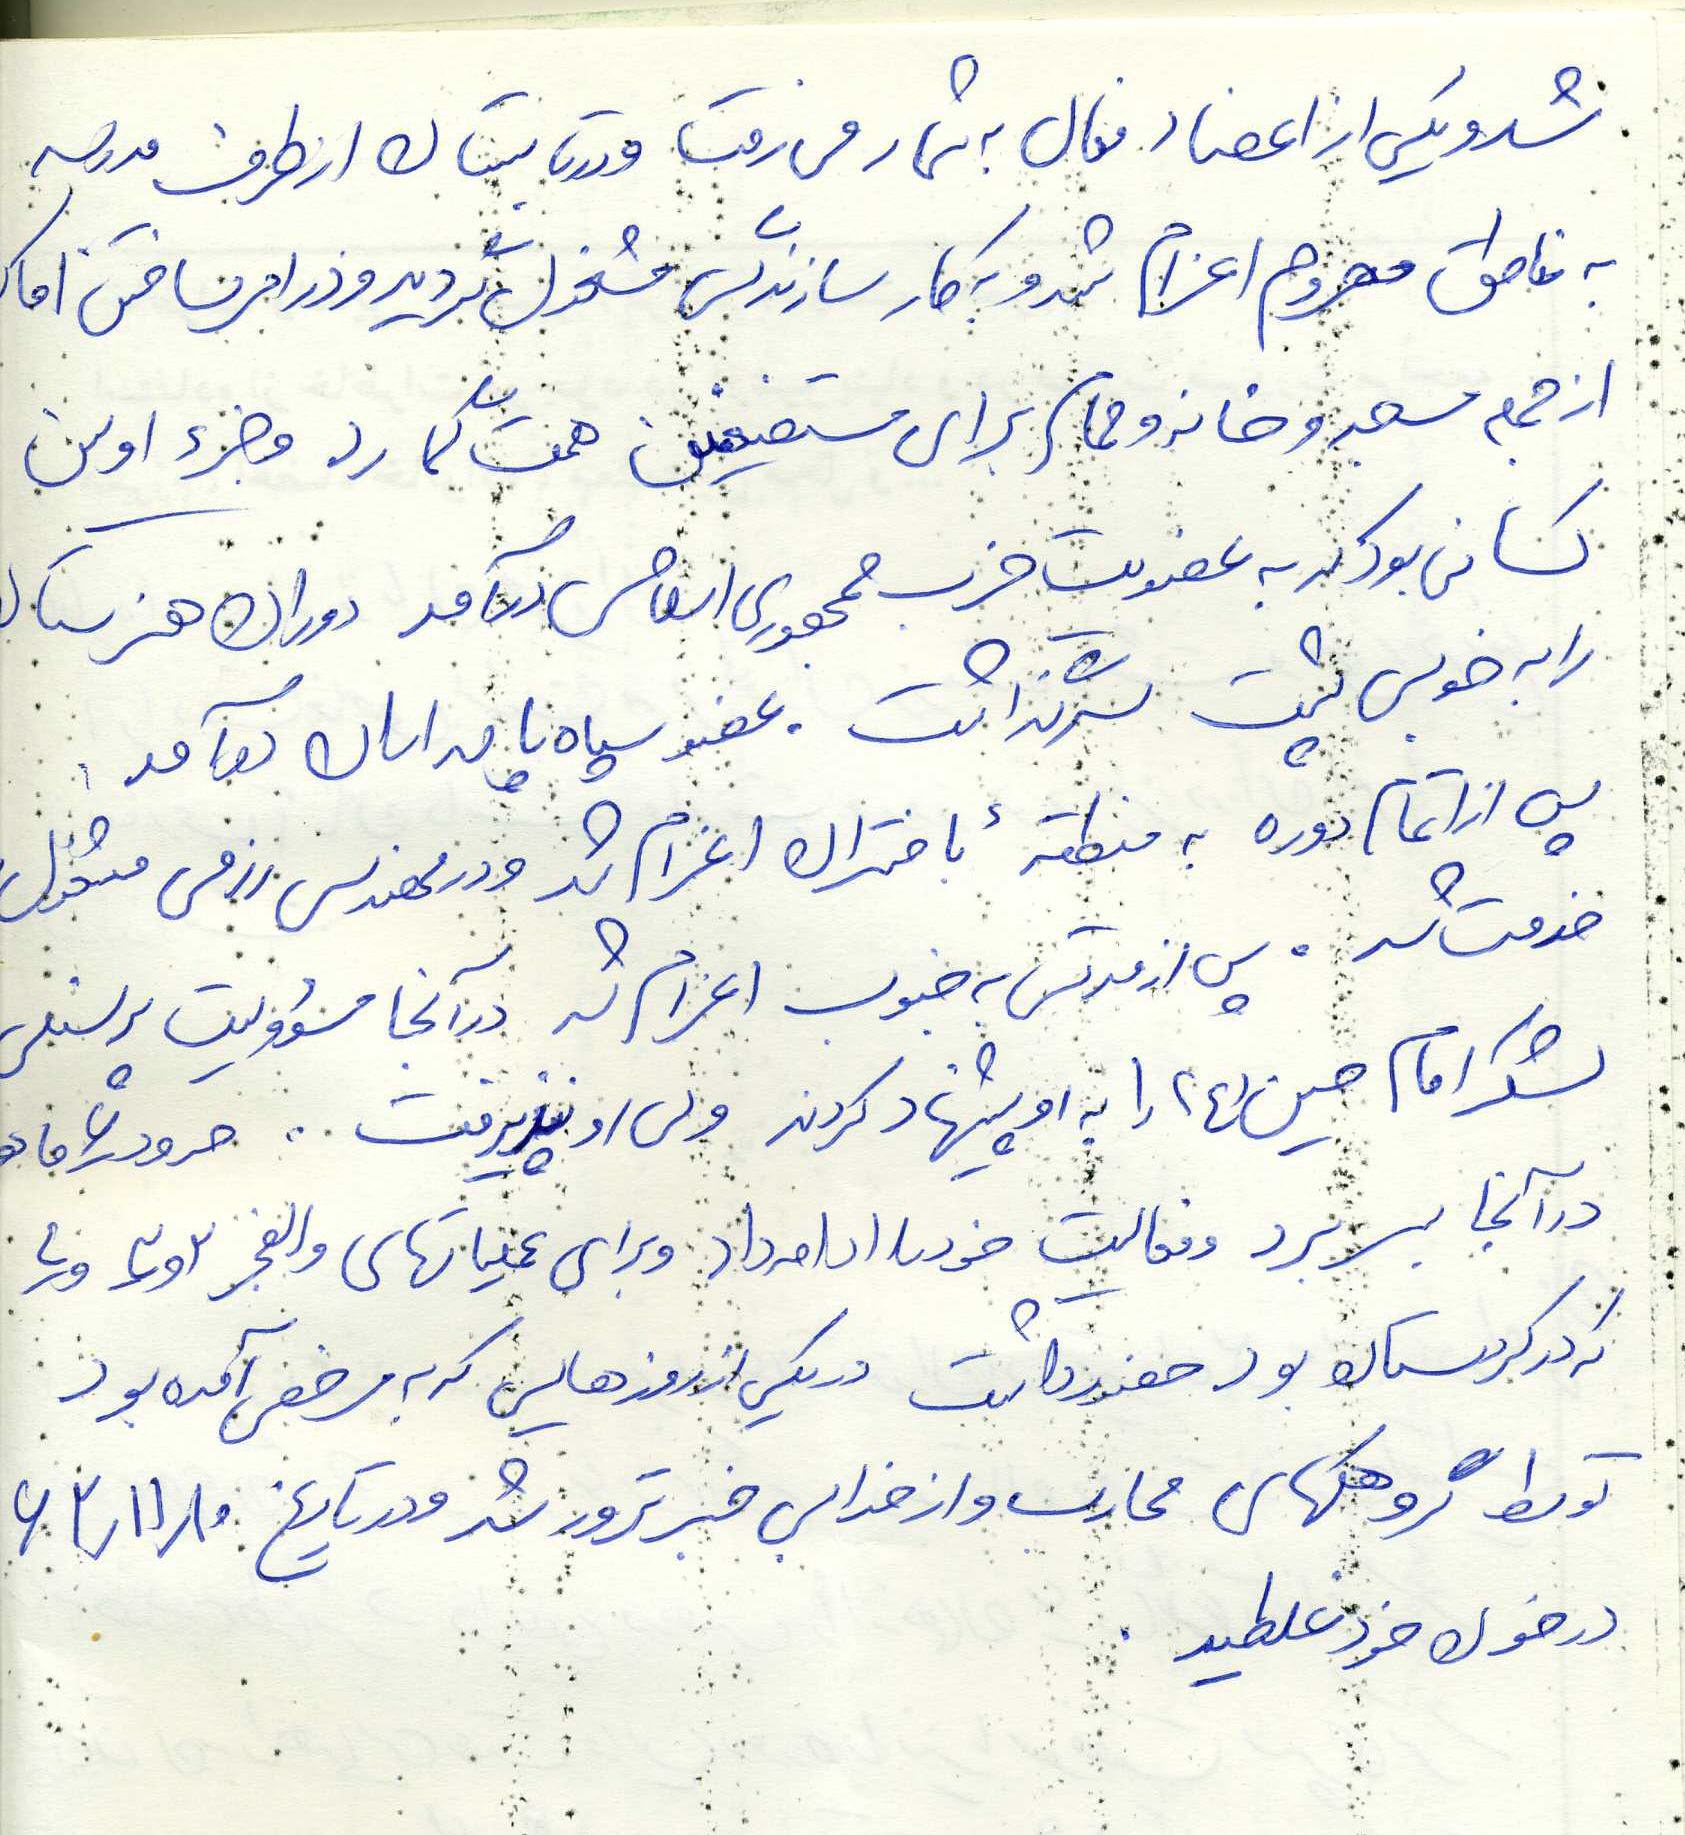 شد و یکی از اعضاء فعال به شمار می رفت و در تابستان از طرف مدرسه
به مناطق محروم اعزام شد و به کار سازندگی مشغول گردید و در امر ساختن اماکن
از جمله مسجد و خانه و حمام برای مستضعفین همت گمارد و جزء اولین
کسانی بود که به عضویت حزب جمهوری اسلامی درآمد دوران هنرستان
را به خوبی پشت سر گذاشت . عضو سپاه پاسداران درآمد .
پس از اتمام دوره به منطقهٔ باختران اعزام شد و در مهندسی رزمی مشغول
خدمت شد . پس از مدتی به جنوب اعزام شد در آنجا مسؤولیت پرسنلی
لشکر امام حسین (ع) را به او پیشنهاد کردند ولی او نپذیرفت . حدود ۶ ماه
در آنجا بسر برد و فعالیت خود را ادامه داد و برای عملیاتهای والفجر ۲ و ۳ و ۴
که در کردستان بود حضور داشت در یکی از روزهایی که به مرخصی آمده بود
توسط گروهکهای محارب و از خدا بی خبر ترور شد و در تاریخ ۶۲/۱۱/۱۰
در خون خود غلطید .